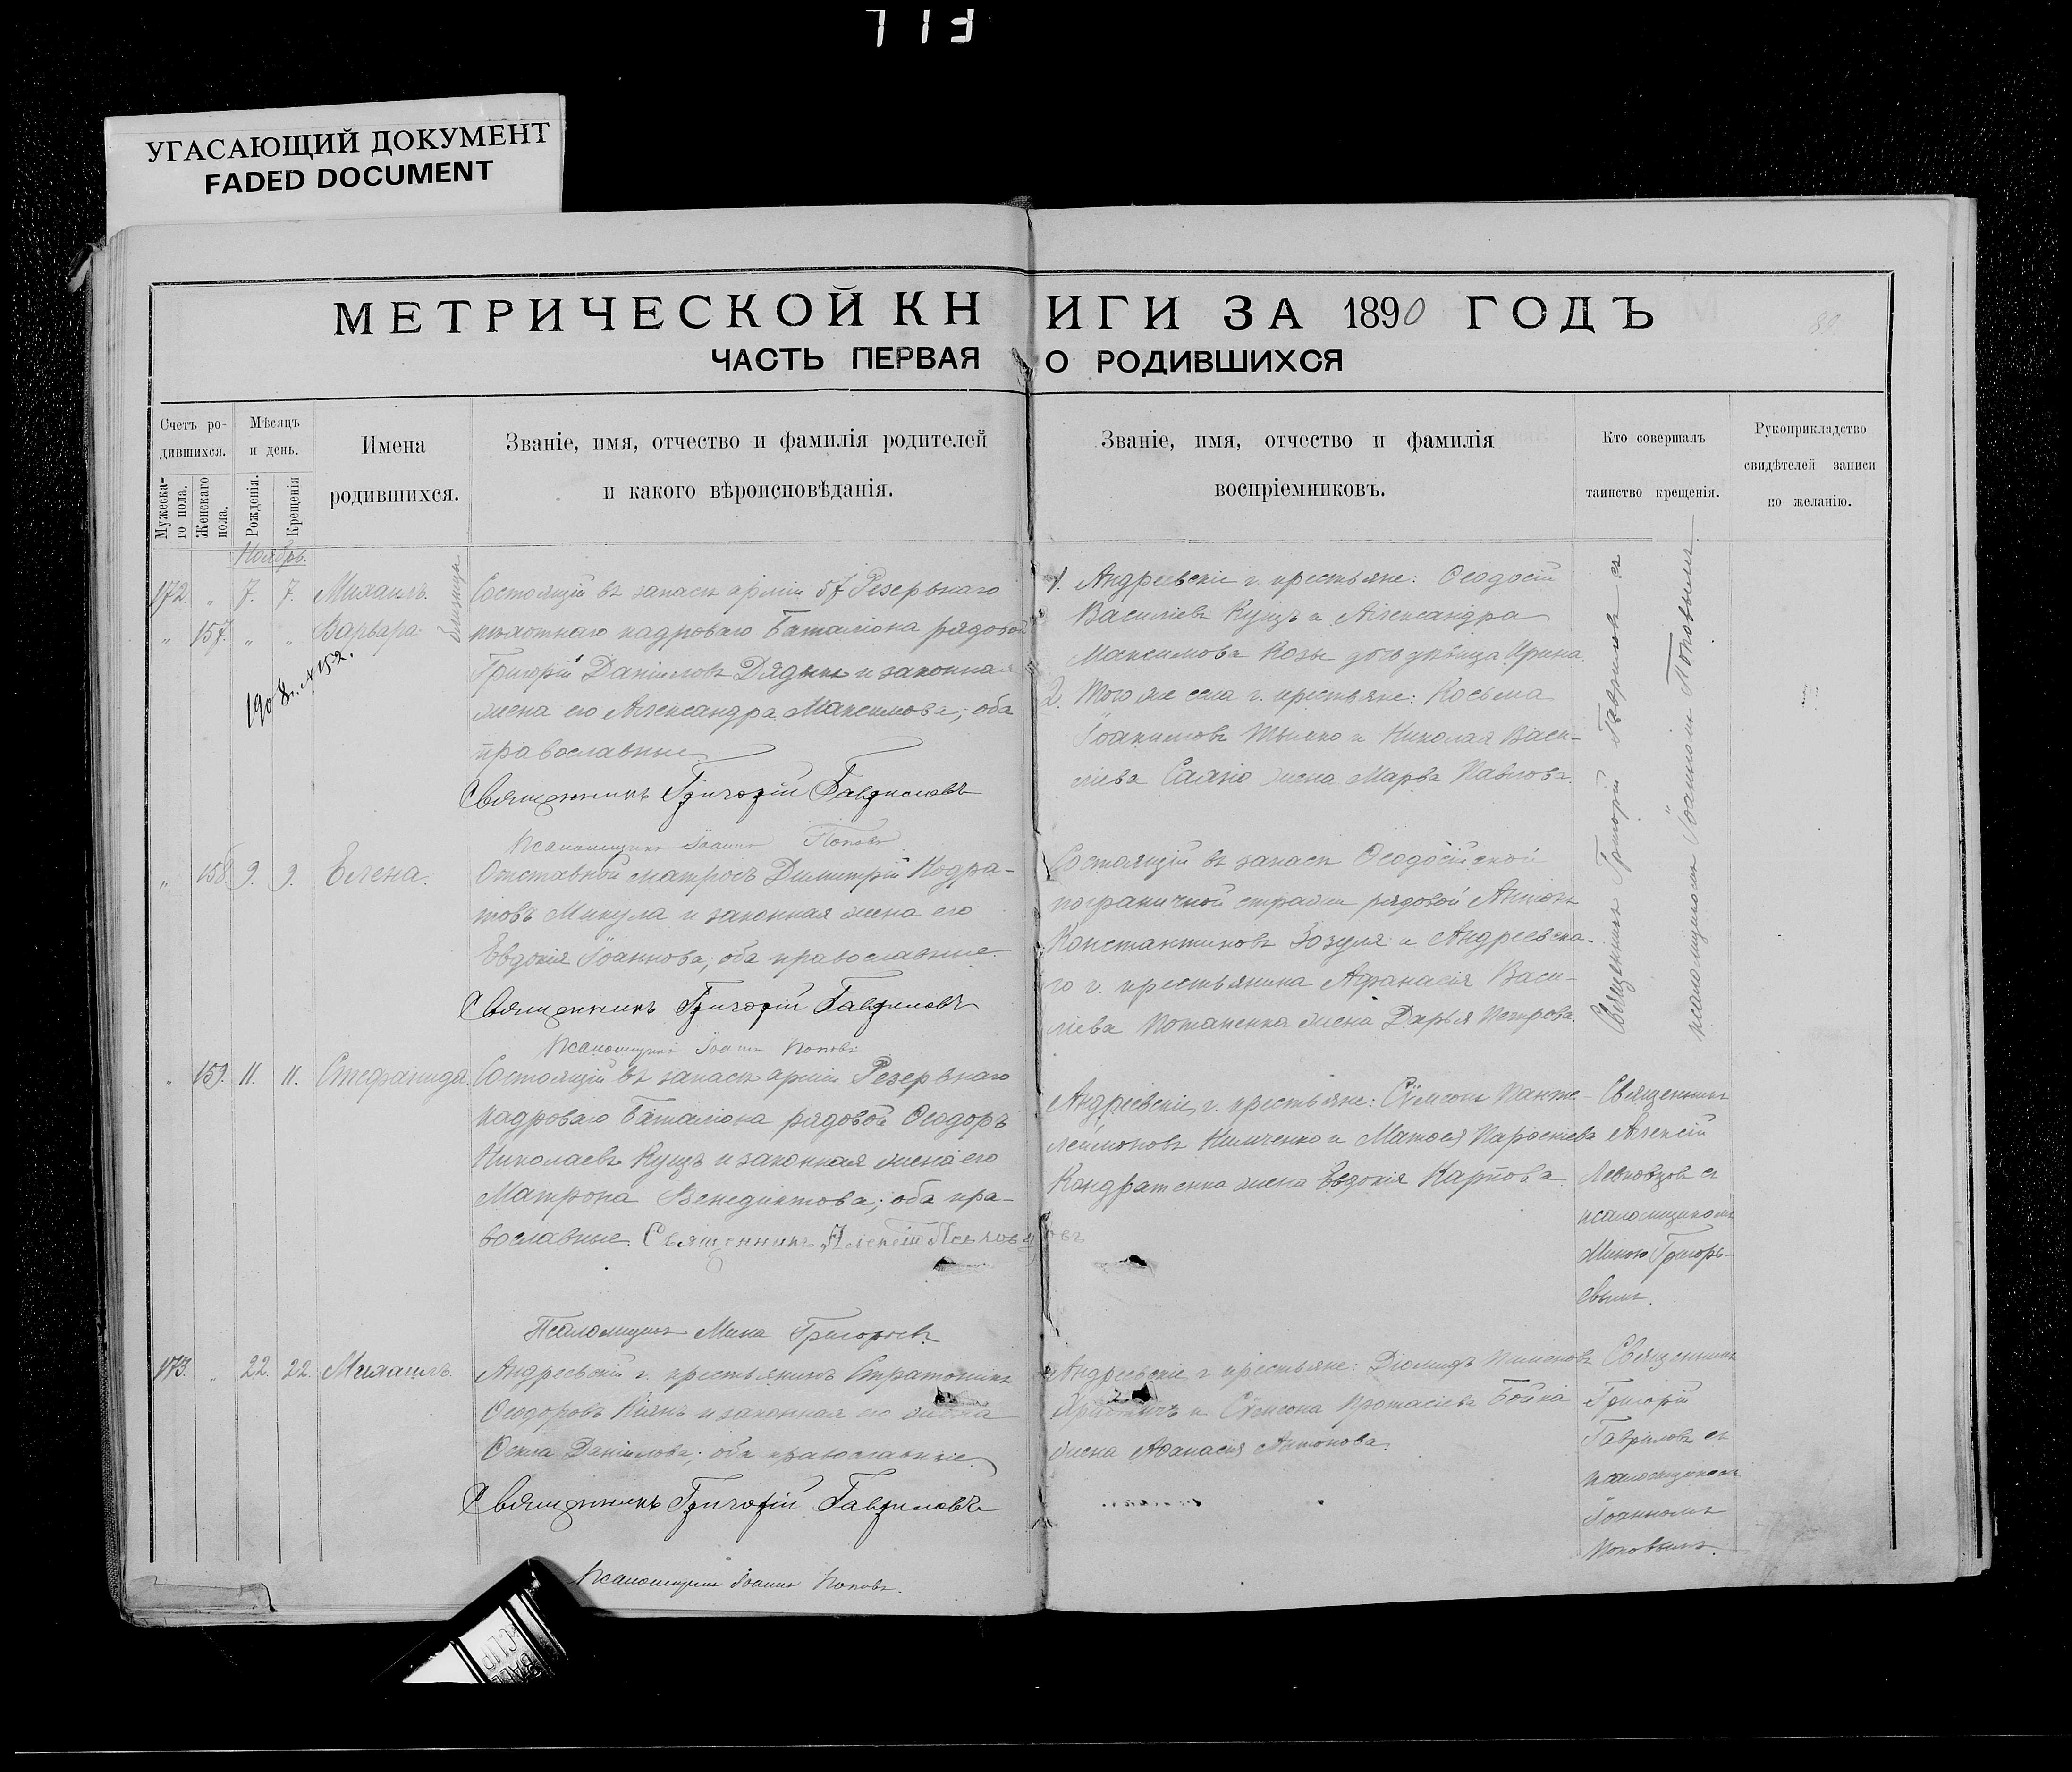 УГАСАЮЩИЙ ДОКУМЕНТ
FADED DOCUMENT
МЕТРИЧЕСКОЙ КНИГИ ЗА 1890 ГОДЪ
ЧАСТЬ ПЕРВАЯ О РОДИВШИХСЯ
Счетъ родившихся.
Мужескаго пола.
Женскаго пола.
Мѣсяцъ и день.
Рожденія.
Крещенія
Имена родившихся.
Званіе, имя, отчество и фамилія родителей
и какого вѣроисповѣданія.
Званіе, имя, отчество и фамилія
воспріемниковъ.
Кто совершалъ
таинство крещенія.
Рукоприкладство
свидѣтелей записи
по желанію.
Ноябрь.
172. „ 7. 7. Михаилъ.
„ 157. „ „ Варвара
близнецы
190 г. №152.
Состоящій въ запасѣ арміи 57 Резервнаго
пѣхотнаго кадроваго Баталіона рядовой
Григорій Даніиловъ Дядык и законная
жена его Александра Максимова; оба
православные
Священникъ Григорій Гавриловъ
Псаломщикъ Іоаннъ Поповъ
1. Андреевскіе г. крестьяне: Ѳеодосій
Василіевъ Куцъ и Александра
Максимова Козы дочь дѣвица Ирина.
2. Того же села г. крестьяне: Косьма
Іоакимовъ и Николая Васи-
ліева жена Марѳа Павлова.
Священникъ Григорій Гавриловъ съ
псаломщикомъ Іоанномъ Поповымъ
„ 158. 9. 9. Елена.
Отставной матросъ Димитрій Кодра-
товъ Микула и законная жена его
Евдокія Іоаннова; оба православные.
Священникъ Григорій Гавриловъ
Псаломщикъ Іоаннъ Поповъ
Состоящій въ запасѣ Ѳеодосійской
пограничной стражи рядовой Антонъ
Константиновъ Зозуля и Андреевска-
го г. крестьянина Аѳанасія Васи-
ліева Потапенка жена Дарья Петрова.
„ 159. 11. 11. Стефанида.
Состоящій въ запасѣ арміи Резервнаго
кадроваго Баталіона рядовой Ѳеодоръ
Николаевъ Куцъ и законная жена его
Матрона Венедиктова; оба пра-
вославные. Священникъ Алексій Левковцовъ
Псаломщикъ Мина Григорьевъ
Андреевскіе г. крестьяне: Сѵмеонъ Панте-
леимоновъ Климченко и Матѳея
Кондратенка жена Евдокія Карпова.
Священникъ
Алексій
Левковцовъ съ
псаломщикомъ
Миною Григорь-
евымъ.
173. „ 22. 22. Михаилъ.
Андреевскій г. крестьянинъ Стратоникъ
Ѳеодоровъ Кіянъ и законная его жена
Даніилова; оба православные
Священникъ Григорій Гавриловъ
Псаломщикъ Іоаннъ Поповъ.
Андреевскіе г. крестьяне: Діомидъ Пименовъ
и Сѵмеона Протасіева Бойка
жена Аѳанасія Антонова.
Священникъ
Григорій
Гавриловъ съ
псаломщикомъ
Іоанномъ
Поповымъ.